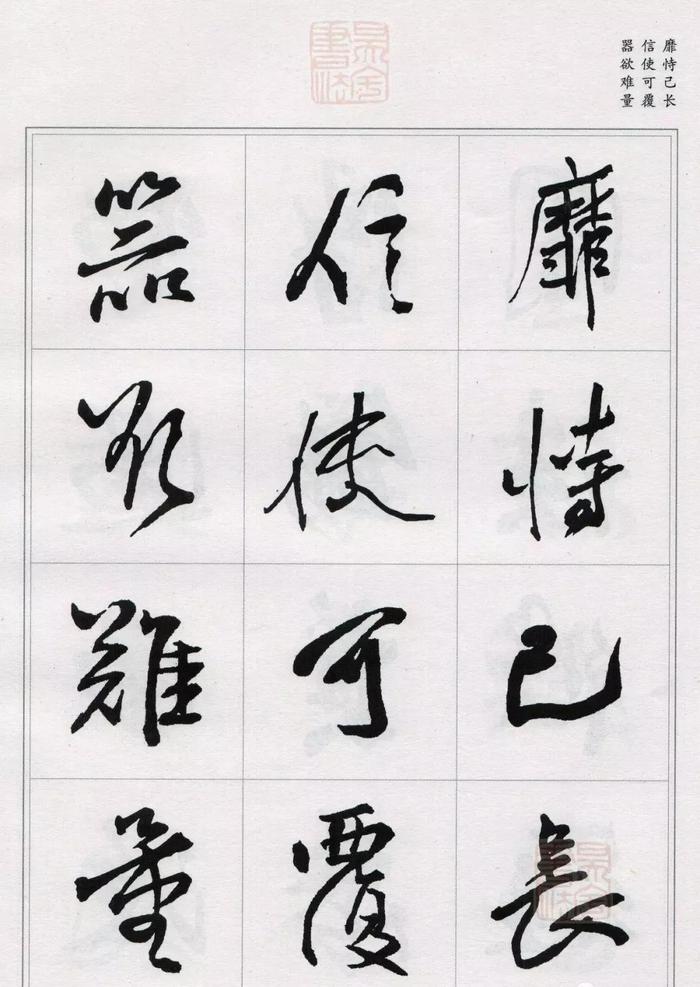 靡恃己长
信使可覆
器欲难量
靡恃己長
信使可覆
器欲難量